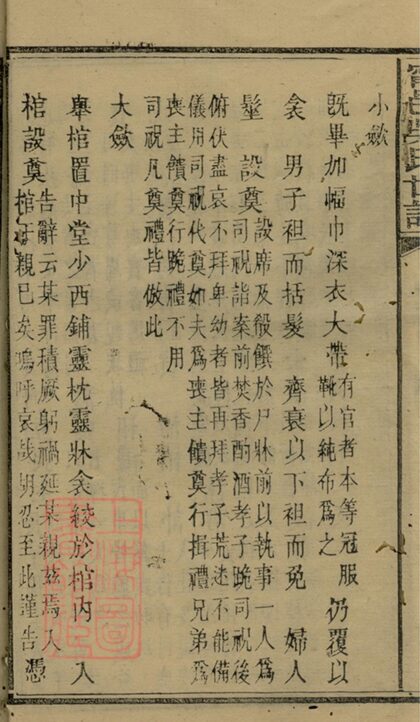 小斂
既畢加幅巾深衣大帶有官者本等冠服
靴以純布爲之仍覆以
衾 男子袒而括髮 齊衰以下袒而免 婦人
髽 設奠設席及殽饌於尸牀前以執事一人爲
司祝詣案前焚香酌酒孝子跪司祝後
俯伏盡哀不拜卑幼者皆再拜孝子荒迷不能備
儀用司祝代奠如夫爲喪主饋奠行揖禮兄弟爲
喪主饋奠行跪禮不用
司祝凡奠禮皆倣此
大斂
舉棺置中堂少西鋪靈枕靈牀衾綾於棺內 入
棺設奠告辭云某罪積厥躬禍延某親玆焉入
棺於親已矣嗚呼哀哉胡忍至此謹告憑